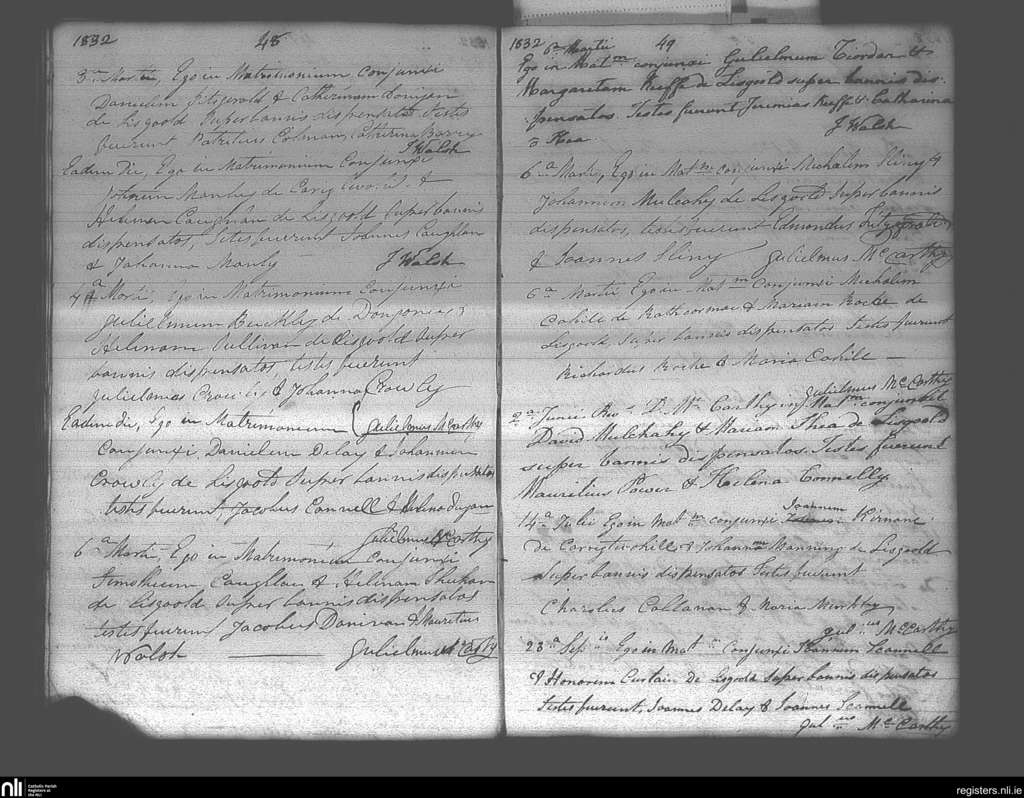 1832 48
3a Martii, Ego in Matrimonium conjunxi
Danielem Fitzgerald & Catherinam Donigan
de Lisgoold Super bannis dispensatos Testes
fuerunt Patritius Colman, Catherina Barry
J Walsh
Eadem die, Ego in Matrimonium Conjunxi
Johannem Manly de &
Helenam Caughlan de Lisgoold Super bannis
dispensatos, Testes fuerunt Joannes Caughlan
& Johanna Manly J Walsh
4a Martii, Ego in Matrimonium Conjunxi
Gulielmum Buckley de &
Helenam Sullivan de Lisgoold Super
bannis dispensatos, testes fuerunt
Gulielmus Crowley & Johanna Crowly
Eadem die, Ego in Matrimonium Gulielmus McCarthy
Conjunxi, Danielem Delay & Johannam
Crowly de Lisgoold Super bannis dispensatos
testes fuerunt, Jacobus Connell & Helena Dugan
Gulielmus McCarthy
6a Martii Ego in Matrimonium Conjunxi
Timotheum Caughlan & Helenam Shehan
de Lisgoold Super bannis dispensatos
testes fuerunt Jacobus Donivan & Mauritius
Walsh Gulielmus McCarthy
1832 6a Martii 49
Ego in Matm conjunxi Gulielmum Riordan &
Margaretam Keeffe de Lisgoold super bannis dis-
pensatos. Testes fuerunt Jeremias Keeffe & Catharina
J Walsh
6a Martii, Ego in Matm conjunxi Michalim Sliny &
Johannam Mulcahy de Lisgoold Super bannis
dispensatos, testes fuerunt Edmondus Fitzgerald
& Joannes Sliny Gulielmus McCarthy
6a Martii Ego in Matm Conjunxi Michalim
Cahill de Rathcormac & Mariam Roche de
Lisgoold, Super bannis dispensatos Testes fuerunt
Richardus Roche & Maria Cahill
Gulielmus McCarthy
2a Junii Rev. D. Mc Carthy in Matm conjunxit
David Mulchahy & Mariam Shea de Lisgoold
super bannis dispensatos. Testes fuerunt
Mauritius Power & Helena Connelly.
14a Julii Ego in Matm conjunxi Joannem Kirnane
de Carrigtwohill & Johannam Manning de Lisgoold
Super bannis dispensatos Testes fuerunt
Charolus Callanan & Maria Murphy
Gulius McCarthy
23a Sepis Ego in Matm Conjunxi Joannem Scannell
& Honoram Curtain De Lisgoold Super bannis dispensatos
Testes fuerunt, Joannes Delay & Joannes Scannell
Gulius McCarthy
nli Catholic Parish
Registers at
the NLI
registers.nli.ie